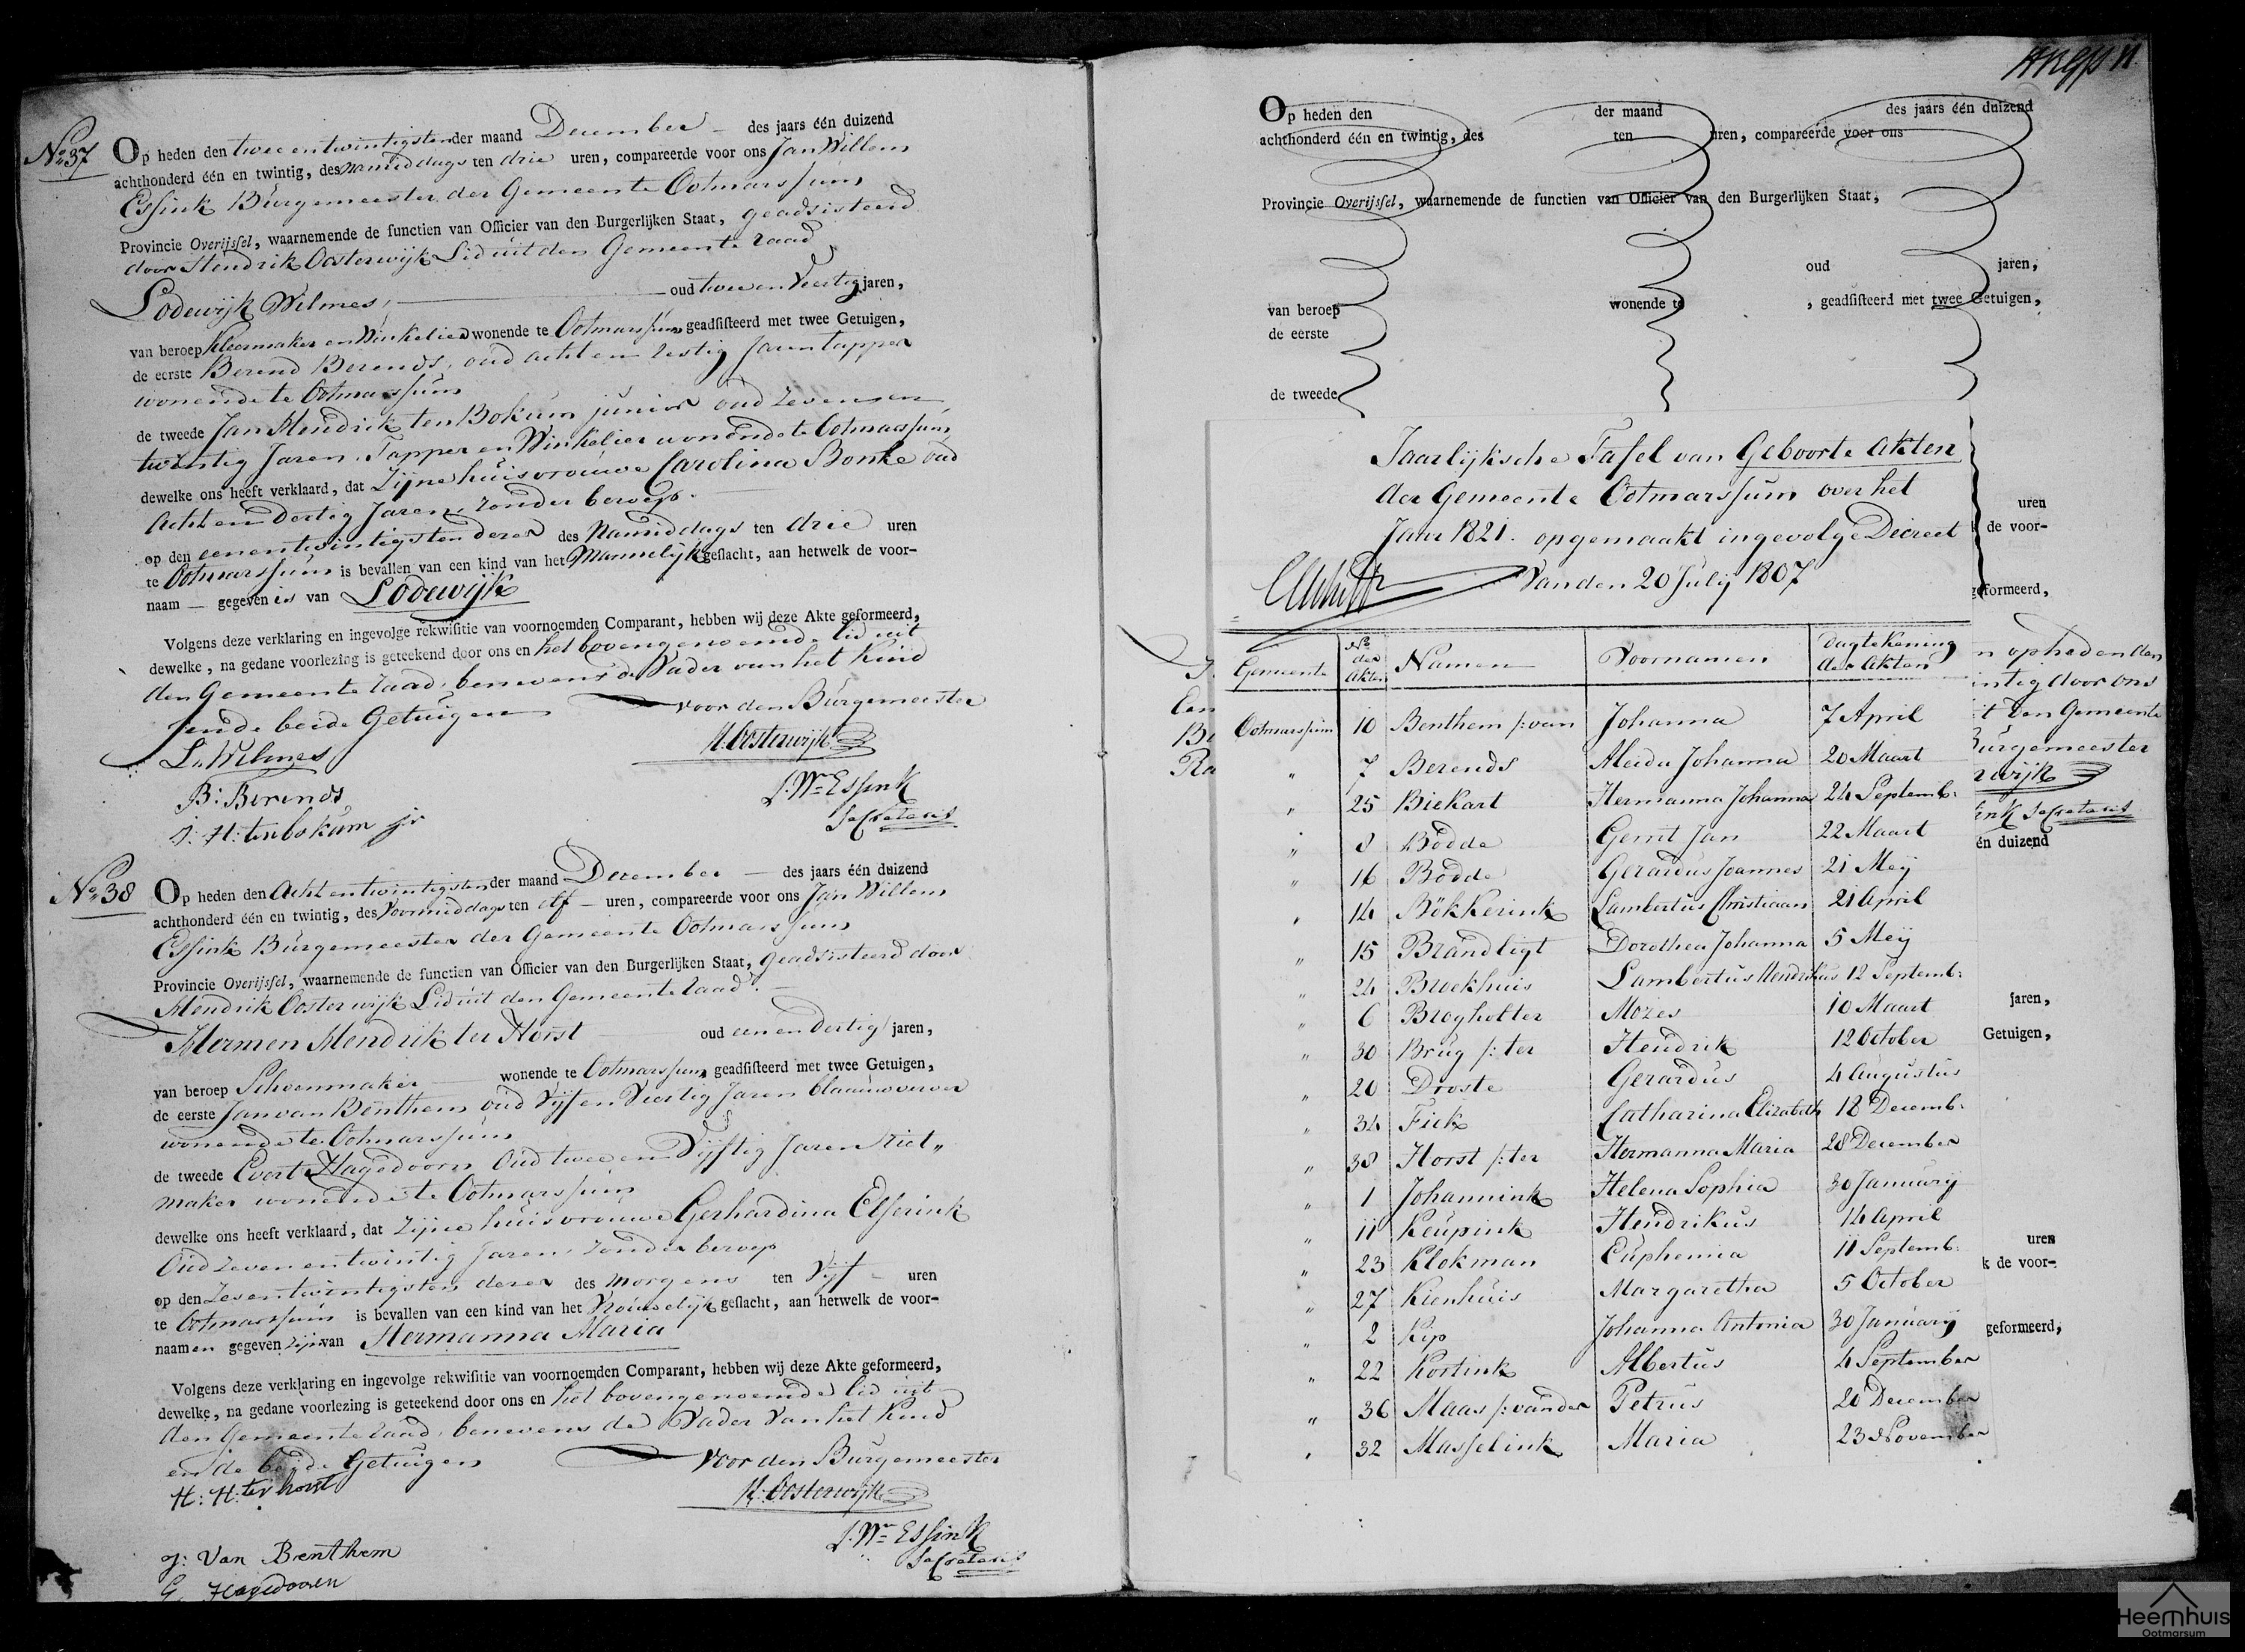 No. 37
Op heden den twee en twintigsten der maand December des jaars één duizend
achthonderd één en twintig, des namiddags ten drie uren, compareerde voor ons Jan Willem
Essink Burgemeester der Gemeente Ootmarssum
Provincie Overijssel, waarnemende de functien van Officier van den Burgerlijken Staat, geadsisteerd
door Hendrik Oosterwijk Lid uit den Gemeente raad
Lodewijk Wilmes, oud twee en Veertig jaren,
van beroep Kleermaker en Winkelier wonende te Ootmarssum geadsisteerd met twee Getuigen,
de eerste Berend Berends, oud acht en zestig Jaren tapper
wonende te Ootmarssum
de tweede Jan Hendrik ten Bokum junior oud zeven en
twintig Jaren, Tapper en Winkelier wonende te Ootmarssum
dewelke ons heeft verklaard, dat Zijne huisvrouwe Carolina Bonke oud
Acht en Dertig Jaren, zonder beroep.
op den eenentwintigsten dezer des Namiddags ten drie uren
te Ootmarssum is bevallen van een kind van het Mannelijk geslacht, aan hetwelk de voor-
naam — gegeven is van Lodewijk
Volgens deze verklaring en ingevolge rekwisitie van voornoemden Comparant, hebben wij deze Akte geformeerd,
dewelke, na gedane voorlezing is geteekend door ons en het bovengenoemde lid uit
den Gemeente raad, benevens de Vader van het Kind
en de beide Getuigen
voor den Burgemeester
L. Wilmes
H. Oosterwijk
B: Berends
J. Wm Essink
Secretaris
J: H: ten bokum jr
No. 38
Op heden den Acht en twintigsten der maand December — des jaars één duizend
achthonderd één en twintig, des Voormiddags ten elf — uren, compareerde voor ons Jan Willem
Essink Burgemeester der Gemeente Ootmarssum
Provincie Overijssel, waarnemende de functien van Officier van den Burgerlijken Staat, geadsisteerd door
Hendrik Oosterwijk Lid uit den Gemeente raad.
Hermen Hendrik ter Horst oud een en Dertig jaren,
van beroep Schoenmaker wonende te Ootmarssum geadsisteerd met twee Getuigen,
de eerste Jan van Benthem oud Vijf en Veertig Jaren blaauwverver
wonende te Ootmarssum
de tweede Evert Hagedoorn Oud twee en Vijftig Jaren Riet„
maker wonende te Ootmarssum
dewelke ons heeft verklaard, dat Zijne huisvrouwe Gerhardina Elserink
Oud Zeven en twintig Jaren, Zonder beroep
op den Zesentwintigsten dezer des morgens ten Vijf uren
te Ootmarssum is bevallen van een kind van het Vrouwelijk geslacht, aan hetwelk de voor-
naamen gegeven zijn van Hermanna Maria
Volgens deze verklaring en ingevolge rekwisitie van voornoemden Comparant, hebben wij deze Akte geformeerd,
dewelke, na gedane voorlezing is geteekend door ons en het bovengenoemde lid uit
den Gemeente raad, benevens de Vader van het Kind
en de beide Getuigen
Voor den Burgemeester
H: H: ter horst
H. Oosterwijk
J. Wm Essink
Secretaris
J: Van Benthem
Hagedoorn
Op heden den der maand des jaars één duizend
achthonderd één en twintig, des ten uren, compareerde voor ons
Provincie Overijssel, waarnemende de functien van Officier van den Burgerlijken Staat,
oud jaren,
van beroep wonende te , geadsisteerd met twee Getuigen,
de eerste
de tweede
Jaarlijksche Tafel van Geboorte Akten
der Gemeente Ootmarssum over het
Jaar 1821. opgemaakt ingevolge Decreet
Van den 20 Julij 1807
uren
de voor-
geformeerd,
n op heden den
intig door ons
it den Gemeente
Burgemeester
rwijk
ink Secretaris
én duizend
jaren,
Getuigen,
uren
k de voor-
geformeerd,
Een
Be
Ra
Gemeente No der Akten Namen Voornamen Dagtekening der Akten
Ootmarssum 10 Benthem /:van Johanna 7 April
" 7 Berends Aleida Johanna 20 Maart
" 25 Biekart Hermanna Johanna 24 Septemb:
" 8 Bodde Gerrit Jan 22 Maart
" 16 Bodde Gerardus Joannes 21 Meij
" 14 Bökkerink Lambertus Christiaan 21 April
" 15 Brandligt Dorothea Johanna 5 Meij
" 24 Broekhuis Lambertus Hendrikus 12 Septemb:
" 6 Brogholter Mozes 10 Maart
" 30 Brug /:ter Hendrik 12 October
" 20 Droste Gerardus 4 Augustus
" 34 Fick Catharina Elizabeth 18 Decemb:
" 38 Horst /:ter Hermanna Maria 28 December
" 1 Johannink Helena Sophia 30 Januarij
" 11 Keupink Hendrikus 14 April
" 23 Klokman Euphemia 11 Septemb:
" 27 Kienhuis Margaretha 5 October
" 2 Kip Johanna Antonia 30 Januarij
" 22 Kostink Albertus 4 September
" 36 Maas /:vander Petrus 20 December
" 32 Masselink Maria 23 November
Heemhuis
Ootmarsum